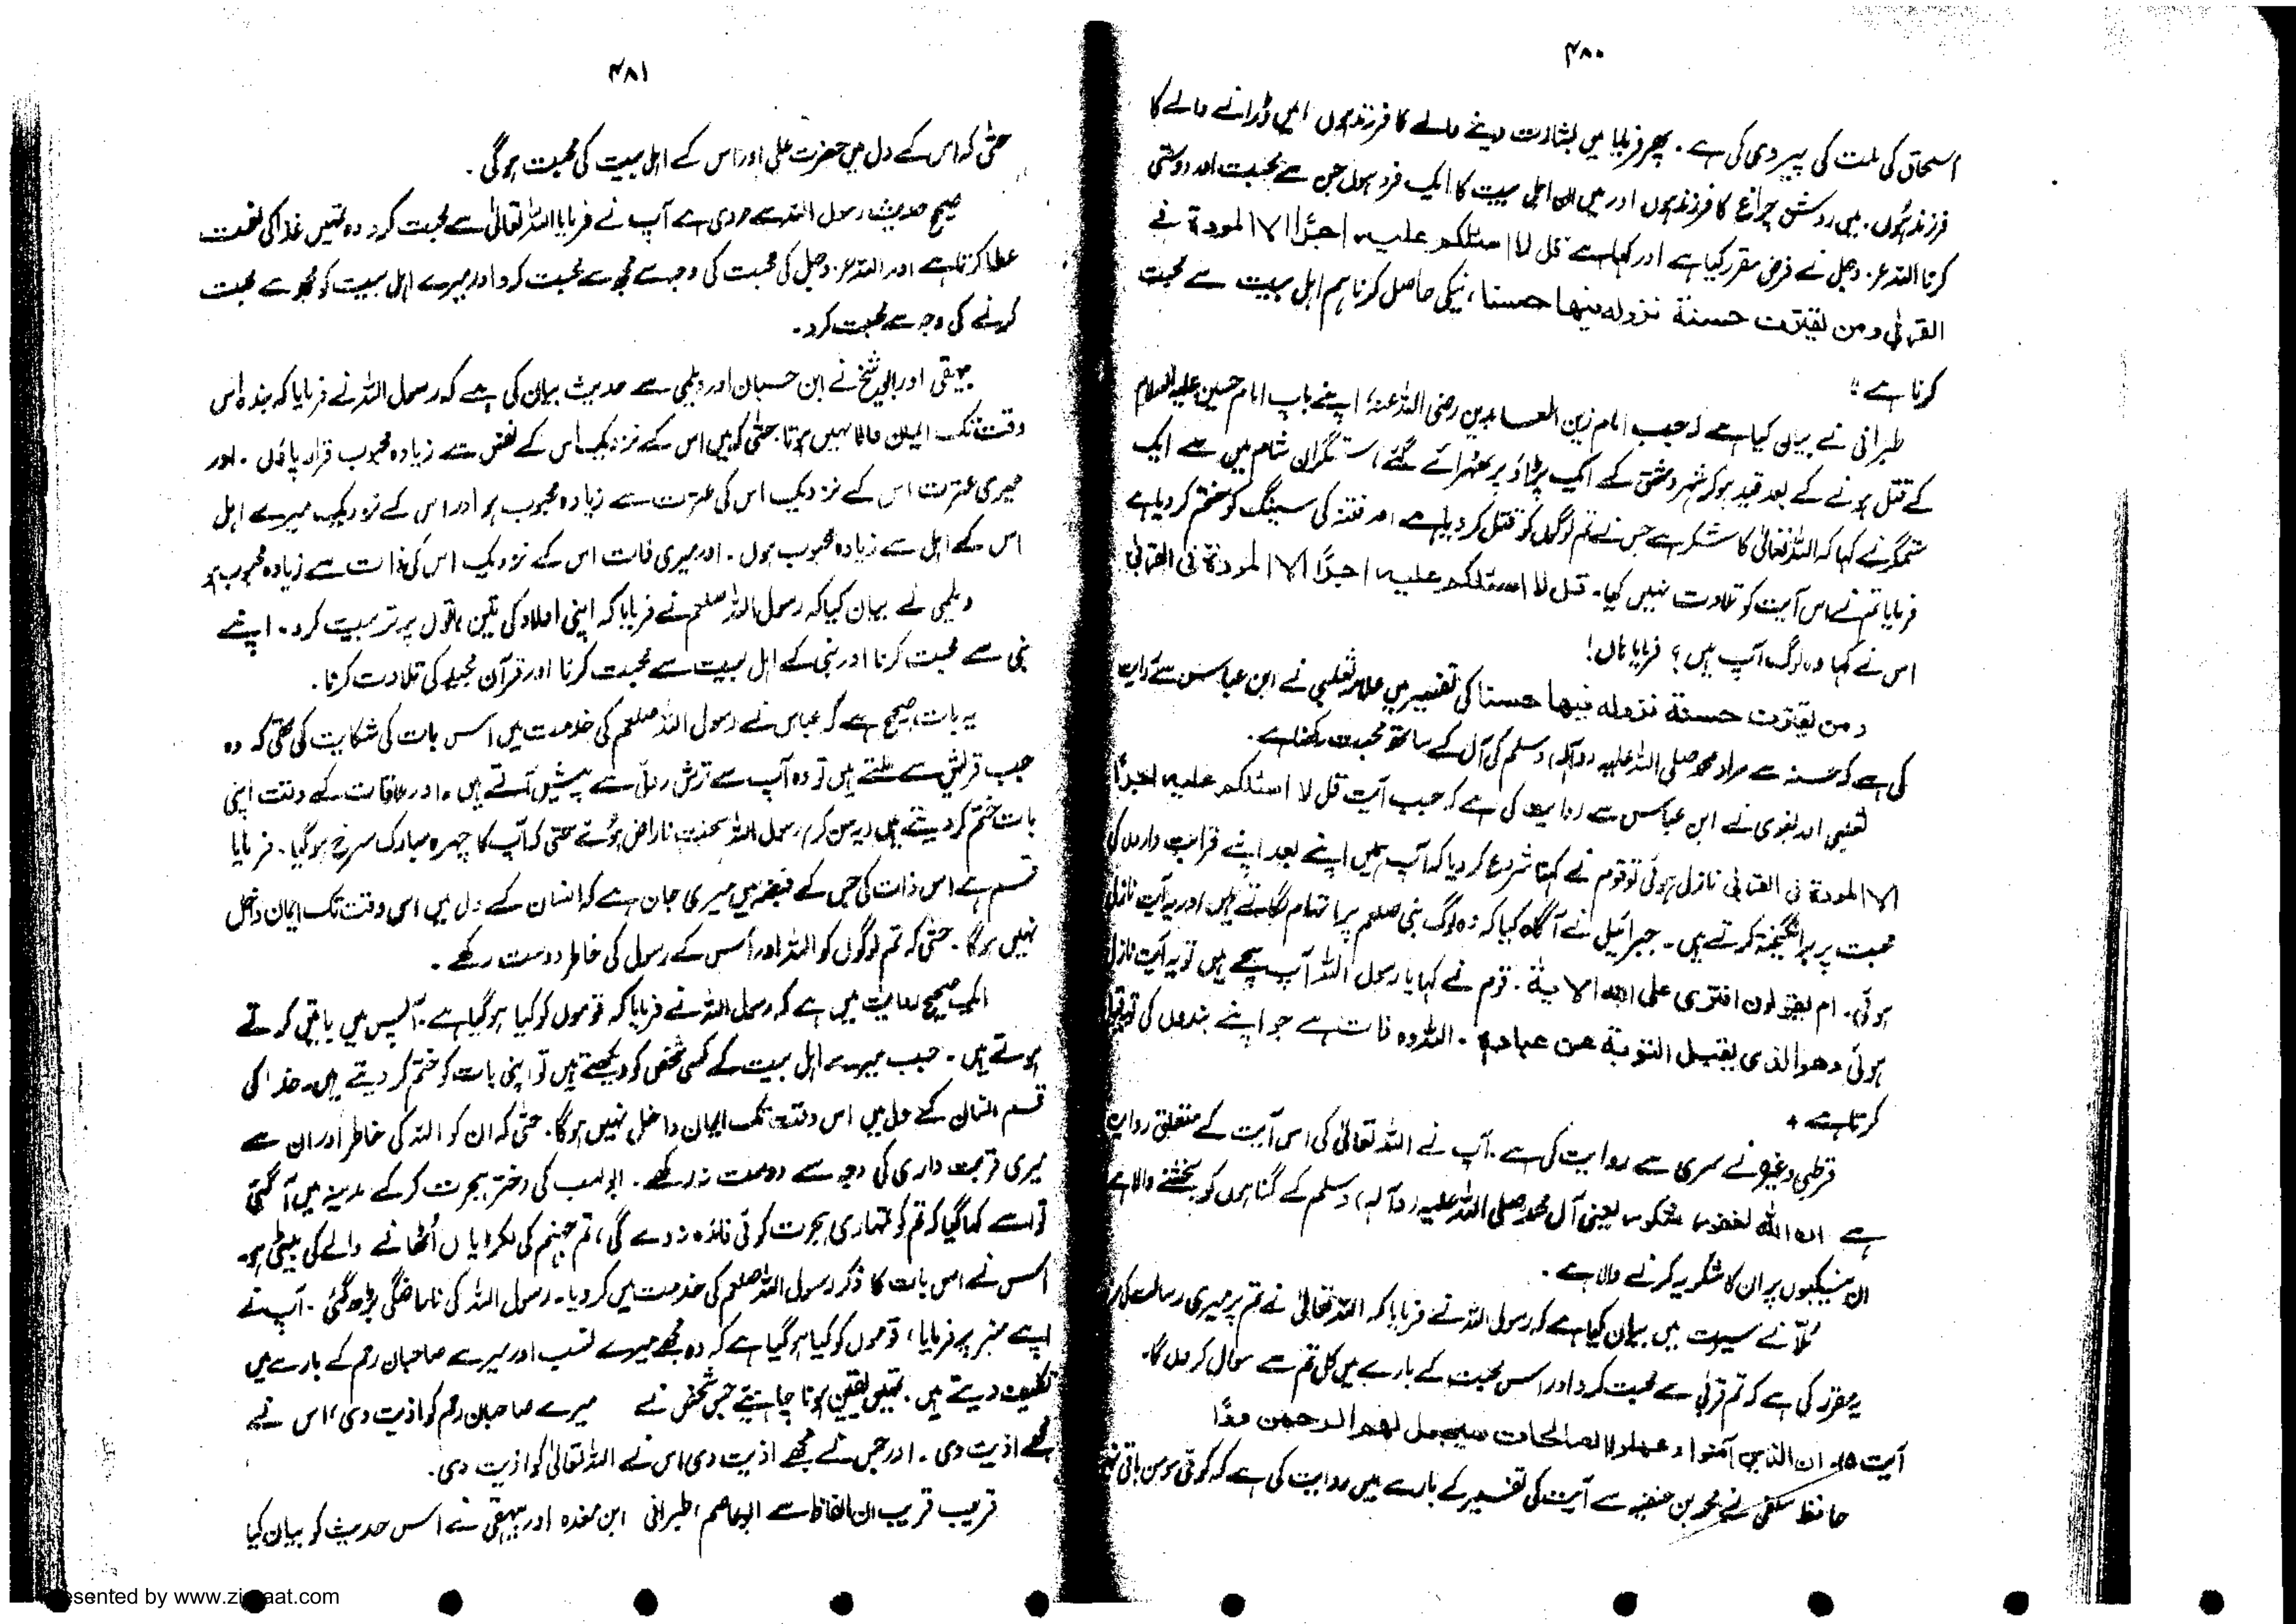 ۴۸۰
اسحاق کی ملت کی پیروی کی ہے . پھر فرمایا میں بشارت دینے والے کا فرزند ہوں میں ڈرانے والے کا
فرزند ہُوں . میں روشن چراغ کا فرزند ہوں اور میں ان اہل بیت کا ایک فرد ہوں جن سے محبت اور دوستی
کرنا اللہ عز . وجل نے فرض مقرر کیا ہے اور کہا ہے قل لا اسئلکم علیہ اجرًا الا المودة فے
القربٰی و من یقترت حسنة نزوله فیها حسنا ، نیکی حاصل کرنا ہم اہل بیت سے محبت
کرنا ہے "
طبرانی نے بیان کیا ہے کہ جب امام زین العابدین رضی اللہ عنہٗ اپنے باپ امام حسین علیہ السلام
کے قتل ہونے کے بعد قید ہو کر شہر دمشق کے ایک پڑاؤ پر ٹھہرائے گئے ، ستمگران شام میں سے ایک
ستمگر نے کہا کہ اللہ تعالیٰ کا شکر ہے جس نے تم لوگوں کو قتل کر دیا ہے اور فتنہ کی سینگ کو ختم کر دیا ہے
فرمایا تم نے اس آیت کو تلاوت نہیں کیا . قل لا اسئلکم علیہ اجرًا الا المودة فی القربٰی
اس نے کہا وہ لوگ آپ ہیں ؟ فرمایا ہاں !
و من یقترت حسنة نزوله فیها حسنا کی تفسیر میں علامہ ثعلبی نے ابن عباس سے روایت
کی ہے کہ حسنہ سے مراد محمد صلی اللہ علیہ (وآلہ) وسلم کی آل کے ساتھ محبت رکھنا ہے .
ثعلبی اور بغوی نے ابن عباس سے روایت کی ہے کہ جب آیت قل لا اسئلکم علیہ اجرًا
الا المودة فی القربٰی نازل ہوئی تو قوم نے کہنا شروع کر دیا کہ آپ ہمیں اپنے بعد اپنے قرابت داروں کی
محبت پر برانگیختہ کرتے ہیں . جبرائیل نے آگاہ کیا کہ وہ لوگ نبی صلعم پر اتہام لگاتے ہیں اور یہ آیت نازل
ہوئی . ام یقولون افتری علی الله الایة . قوم نے کہا یا رسول اللہ آپ سچے ہیں تو یہ آیت نازل
ہوئی وهو الذی یقبل التوبة عن عباده . اللہ وہ ذات ہے جو اپنے بندوں کی توبہ قبول
کرتا ہے +
قرطبی وغیرہ نے سدی سے روایت کی ہے . آپ نے اللہ تعالیٰ کی اس آیت کے متعلق روایت
ہے ان الله لغفور شکور یعنی آل محمد صلی اللہ علیہ (وآلہ) وسلم کے گناہوں کو بخشنے والا ہے
ان نیکیوں پر ان کا شکریہ کرنے والا ہے .
مُلّا نے سیرت میں بیان کیا ہے کہ رسول اللہ نے فرمایا کہ اللہ تعالیٰ نے تم پر میری رسالت کی
یہ مقرر کی ہے کہ تم قربٰی سے محبت کرو اور اس محبت کے بارے میں کل تم سے سوال کروں گا .
آیت ۱۵ ان الذین آمنوا و عملوا الصالحات سیجعل لهم الرحمن ودًّا
حافظ سلفی نے محمد بن حنفیہ سے آیت کی تفسیر کے بارے میں روایت کی ہے کہ کوئی مومن باقی نہیں
۴۸۱
حتٰی کہ اس کے دل میں حضرت علی اور اس کے اہل بیت کی محبت ہوگی .
صحیح حدیث رسول اللہ سے مروی ہے آپ نے فرمایا اللہ تعالیٰ سے محبت کرو وہ تمہیں غذا کی نعمت
عطا کرتا ہے اور اللہ عز . وجل کی محبت کی وجہ سے مجھ سے محبت کرو اور میرے اہل بیت کو مجھ سے محبت
کرنے کی وجہ سے محبت کرو .
بیہقی اور ابو الشیخ نے ابن حبان اور دیلمی سے حدیث بیان کی ہے کہ رسول اللہ نے فرمایا کہ بندہ اس
وقت تک ایمان والا نہیں ہوتا حتٰی کہ میں اس کے نزدیک اس کے نفس سے زیادہ محبوب قرار پاؤں . اور
میری عترت اس کے نزدیک اس کی عترت سے زیادہ محبوب ہو اور اس کے نزدیک میرے اہل
اس کے اہل سے زیادہ محبوب ہوں . اور میری ذات اس کے نزدیک اس کی ذات سے زیادہ محبوب ہو
دیلمی نے بیان کیا کہ رسول اللہ صلعم نے فرمایا کہ اپنی اولاد کی تین باتوں پر تربیت کرو . اپنے
نبی سے محبت کرنا اور نبی کے اہل بیت سے محبت کرنا اور قرآن مجید کی تلاوت کرنا .
یہ بات صحیح ہے کہ عباس نے رسول اللہ صلعم کی خدمت میں اس بات کی شکایت کی تھی کہ وہ
جب قریش سے ملتے ہیں تو وہ آپ سے ترش روئی سے پیش آتے ہیں ، اور ملاقات کے وقت اپنی
بات ختم کر دیتے ہیں یہ سن کر رسول اللہ سخت ناراض ہوئے حتی کہ آپ کا چہرہ مبارک سرخ ہو گیا . فرمایا
قسم ہے اس ذات کی جس کے قبضہ میں میری جان ہے کہ انسان کے دل میں اس وقت تک ایمان داخل
نہیں ہوگا . حتٰی کہ تم لوگوں کو اللہ اور اُس کے رسول کی خاطر دوست رکھے .
ایک صحیح روایت میں ہے کہ رسول اللہ نے فرمایا کہ قوموں کو کیا ہو گیا ہے . آپس میں باتیں کرتے
ہوتے ہیں . جب میرے اہل بیت کے کسی شخص کو دیکھتے ہیں تو اپنی بات کو ختم کر دیتے ہیں . خدا کی
قسم انسان کے دل میں اس وقت تک ایمان داخل نہیں ہوگا . حتٰی کہ ان کو اللہ کی خاطر اور ان سے
میری قربت داری کی وجہ سے دوست نہ رکھے . ابولہب کی دختر ہجرت کر کے مدینہ میں آ گئی
تو اسے کہا گیا کہ تم کو تمہاری ہجرت کوئی فائدہ نہ دے گی ، تم جہنم کی لکڑیاں اُٹھانے والے کی بیٹی ہو .
اُس نے اس بات کا ذکر رسول اللہ صلعم کی خدمت میں کر دیا . رسول اللہ کی ناراضگی بڑھ گئی . آپ نے
اپنے منبر پر فرمایا ، قوموں کو کیا ہو گیا ہے کہ وہ مجھے میرے نسب اور میرے صاحبان رحم کے بارے میں
تکلیف دیتے ہیں . تمہیں یقین ہونا چاہیئے جس شخص نے میرے صاحبان رحم کو اذیت دی ، اس نے
مجھے اذیت دی . اور جس نے مجھے اذیت دی اس نے اللہ تعالیٰ کو اذیت دی .
قریب قریب ان الفاظ سے ابو عاصم ، طبرانی ابن مندہ اور بیہقی نے اس حدیث کو بیان کیا
esented by www.zi aat.com